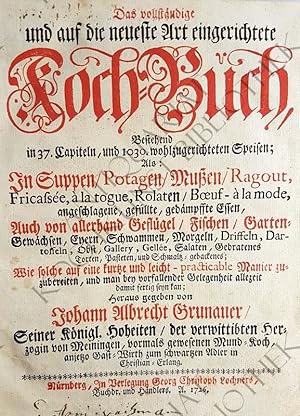 Das vollständige
und auf die neueste Art eingerichtete
Koch-Buch,
Bestehend
in 37. Capiteln, und 1030. wohlzugerichteten Speisen;
Als:
In Suppen/ Potagen/ Mußen/ Ragout,
Fricassée, à la togue, Rolaten/ Bœuf-à la mode,
angeschlagene, gefüllte, gedämpffte Essen,
Auch von allerhand Geflügel/ Fischen/ Garten-
Gewächsen, Eyern, Schwammen, Morgeln, Driffeln, Dar-
toffeln, Obst, Gallery, Gelles, Salaten, Gebratenes
Torten, Pasteten, und Schmaltz-gebackenes;
Wie solche auf eine kurtze und leicht-practicable Manier zu-
zubereiten, und man bey vorfallender Gelegenheit allezeit
damit fertig seyn kan;
Heraus gegeben von
Johann Albrecht Grunauer/
Seiner Königl. Hoheiten/ der verwittibten Her-
zogin von Meiningen, vormals gewesenen Mund-Koch,
anjetzo Gast-Wirth zum schwartzen Adler in
Christian-Erlang.
Nürnberg, In Verlegung Georg Christoph Lochners,
Buchdr. und Händlers. A. 1726.